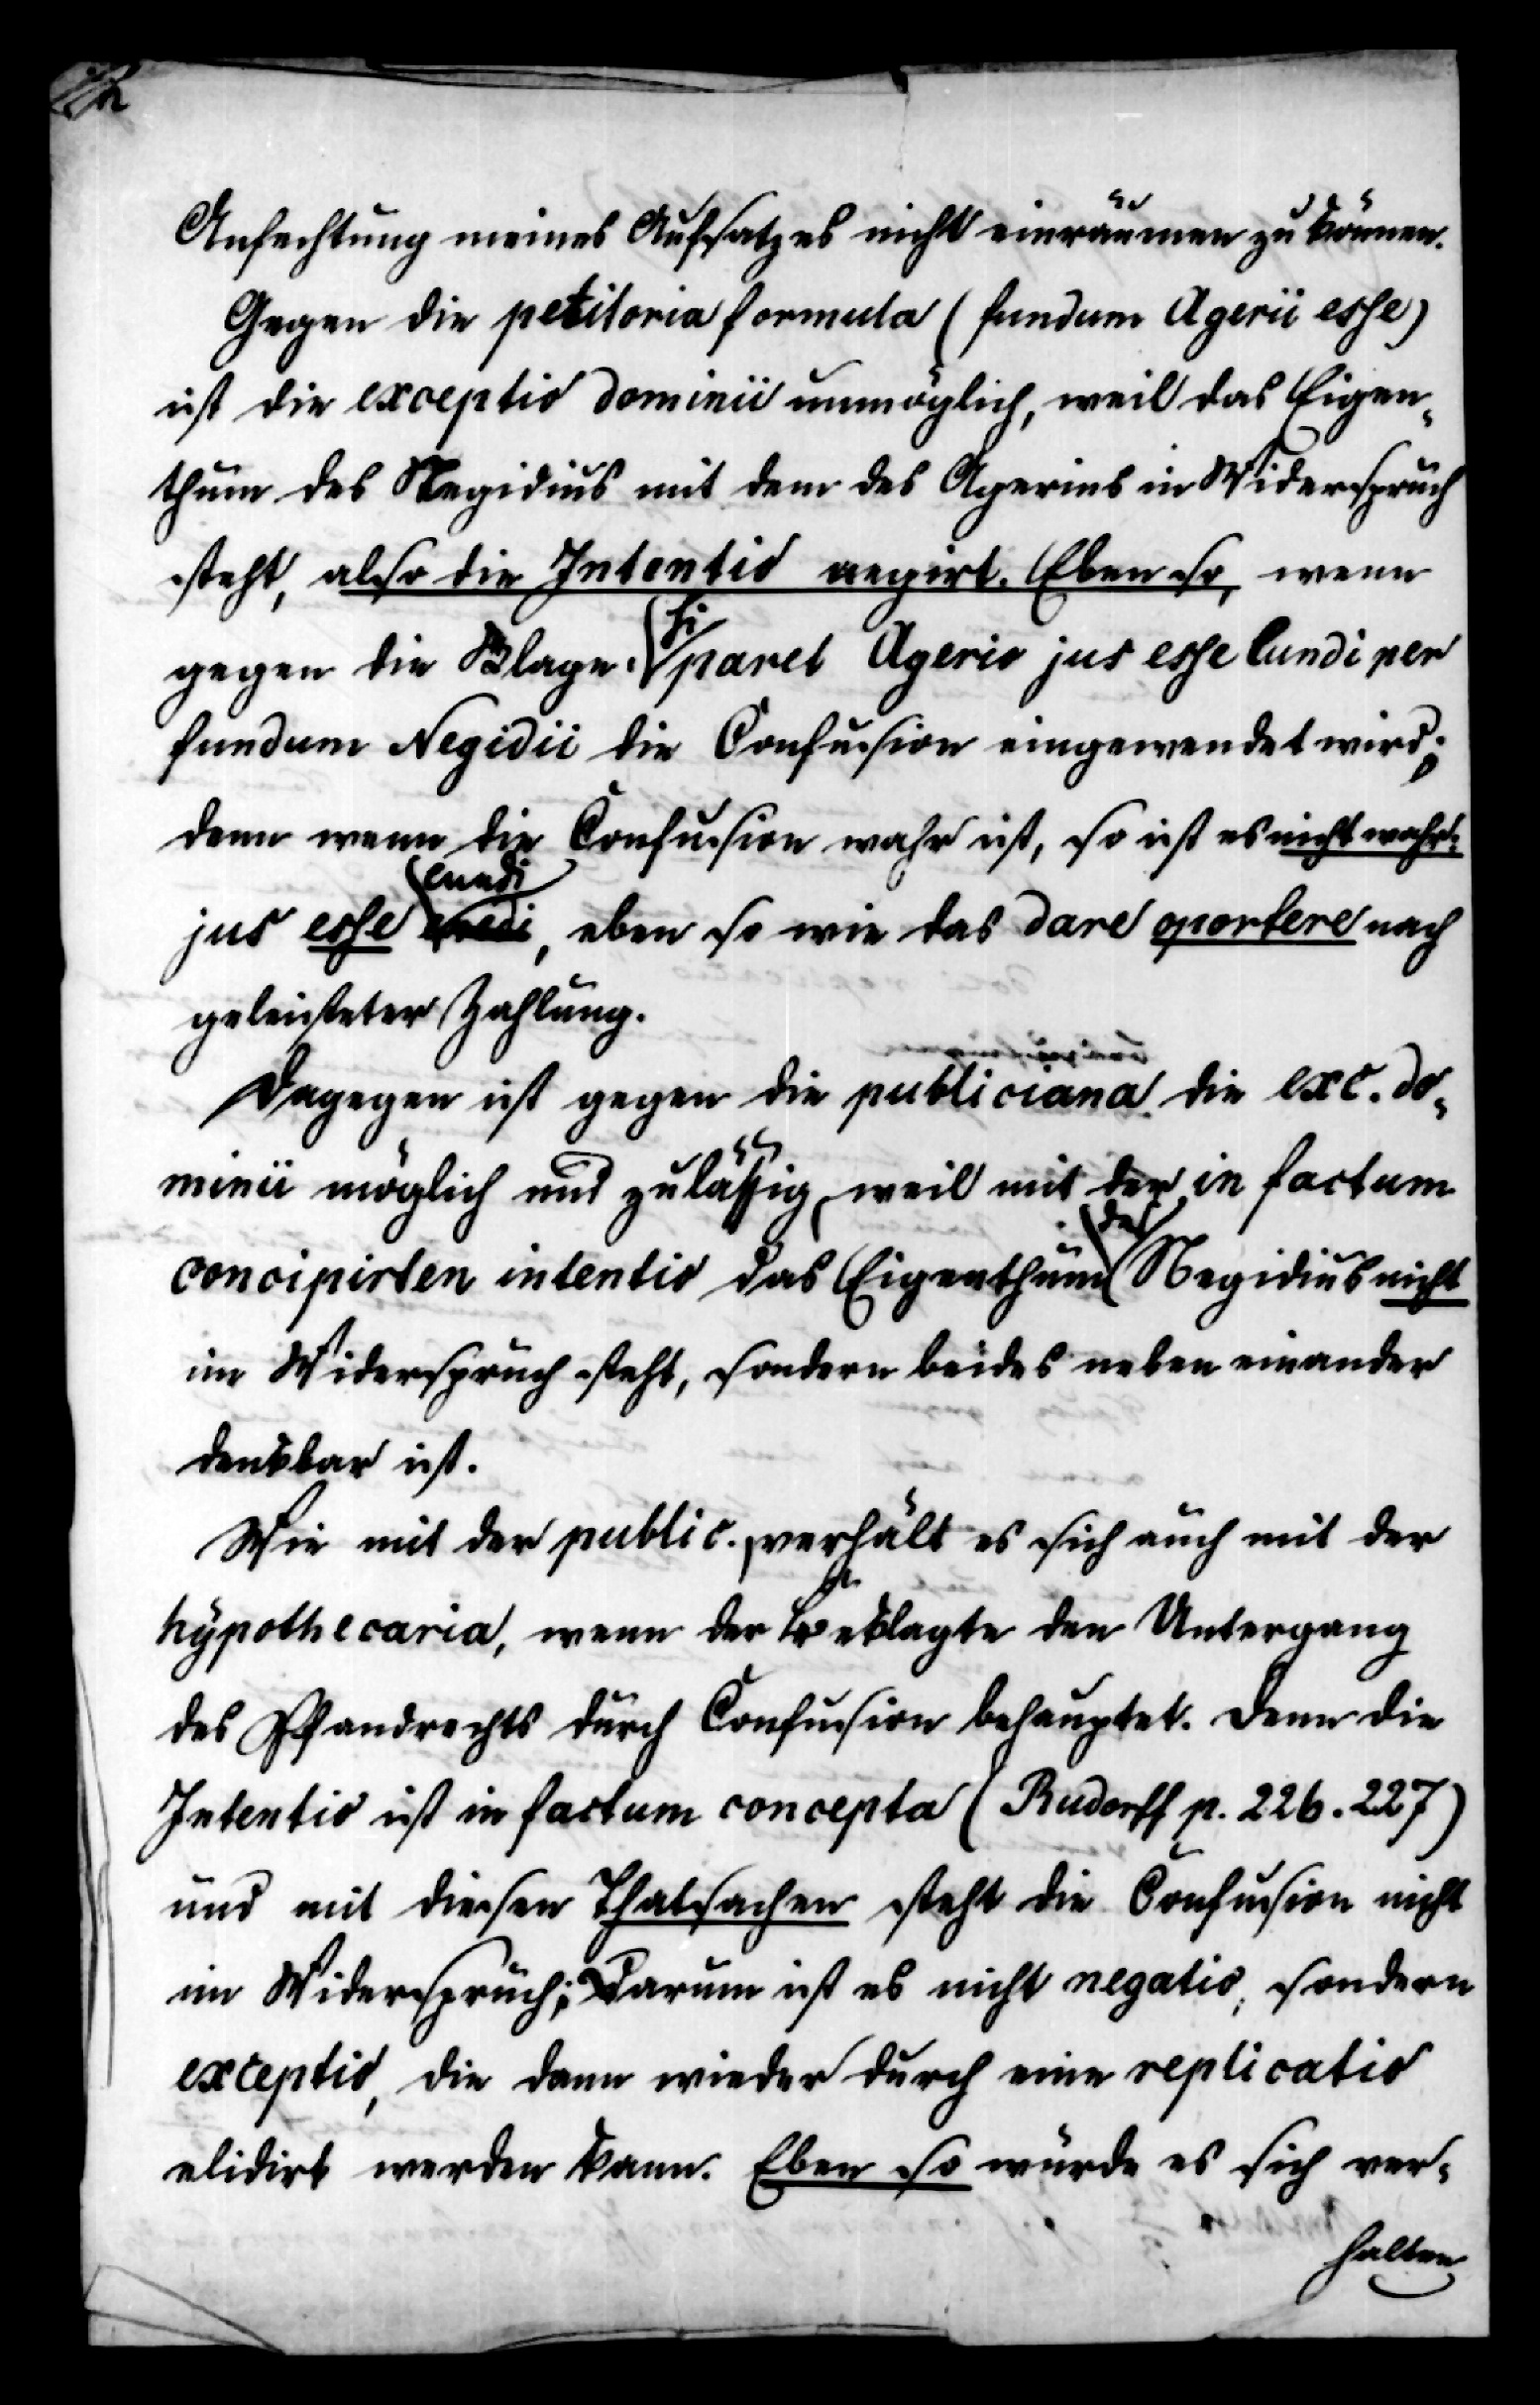 Anfechtung meines Aufsatzes nicht einräumen zu können.
Gegen die petitoria formula (fundum Agerii esse)
ist die exceptio dominii unmöglich, weil das Eigen-
thum des Negidius mit dem des Agerius in Widerspruch
steht, also die Intentio negirt. Eben so, wenn
gegen die Klage: si paret Agerio jus esse eundi per
fundum Negidii die Confusion eingewendet wird;
denn wenn die Confusion wahr ist, so ist es nicht wahr:
jus esse eundi, eben so wie das dare oportere nach
geleisteter Zahlung.
Dagegen ist gegen die publiciana die exc. do-
minii möglich und zulässig, weil mit der in factum
concipirten intentio das Eigenthum des Negidius nicht
im Widerspruch steht, sondern beides neben einander
denkbar ist.
Wie mit der public. verhält es sich auch mit der
hypothecaria, wenn der Beklagte den Untergang
des Pfandrechts durch Confusion behauptet. Denn die
Intentio ist in factum concepta (Rudorff p. 226. 227)
und mit diesen Thatsachen steht die Confusion nicht
im Widerspruch; Darum ist es nicht negatio, sondern
exceptio, die dann wieder durch eine replicatio
elidirt werden kann. Eben so würde es sich ver-
halten